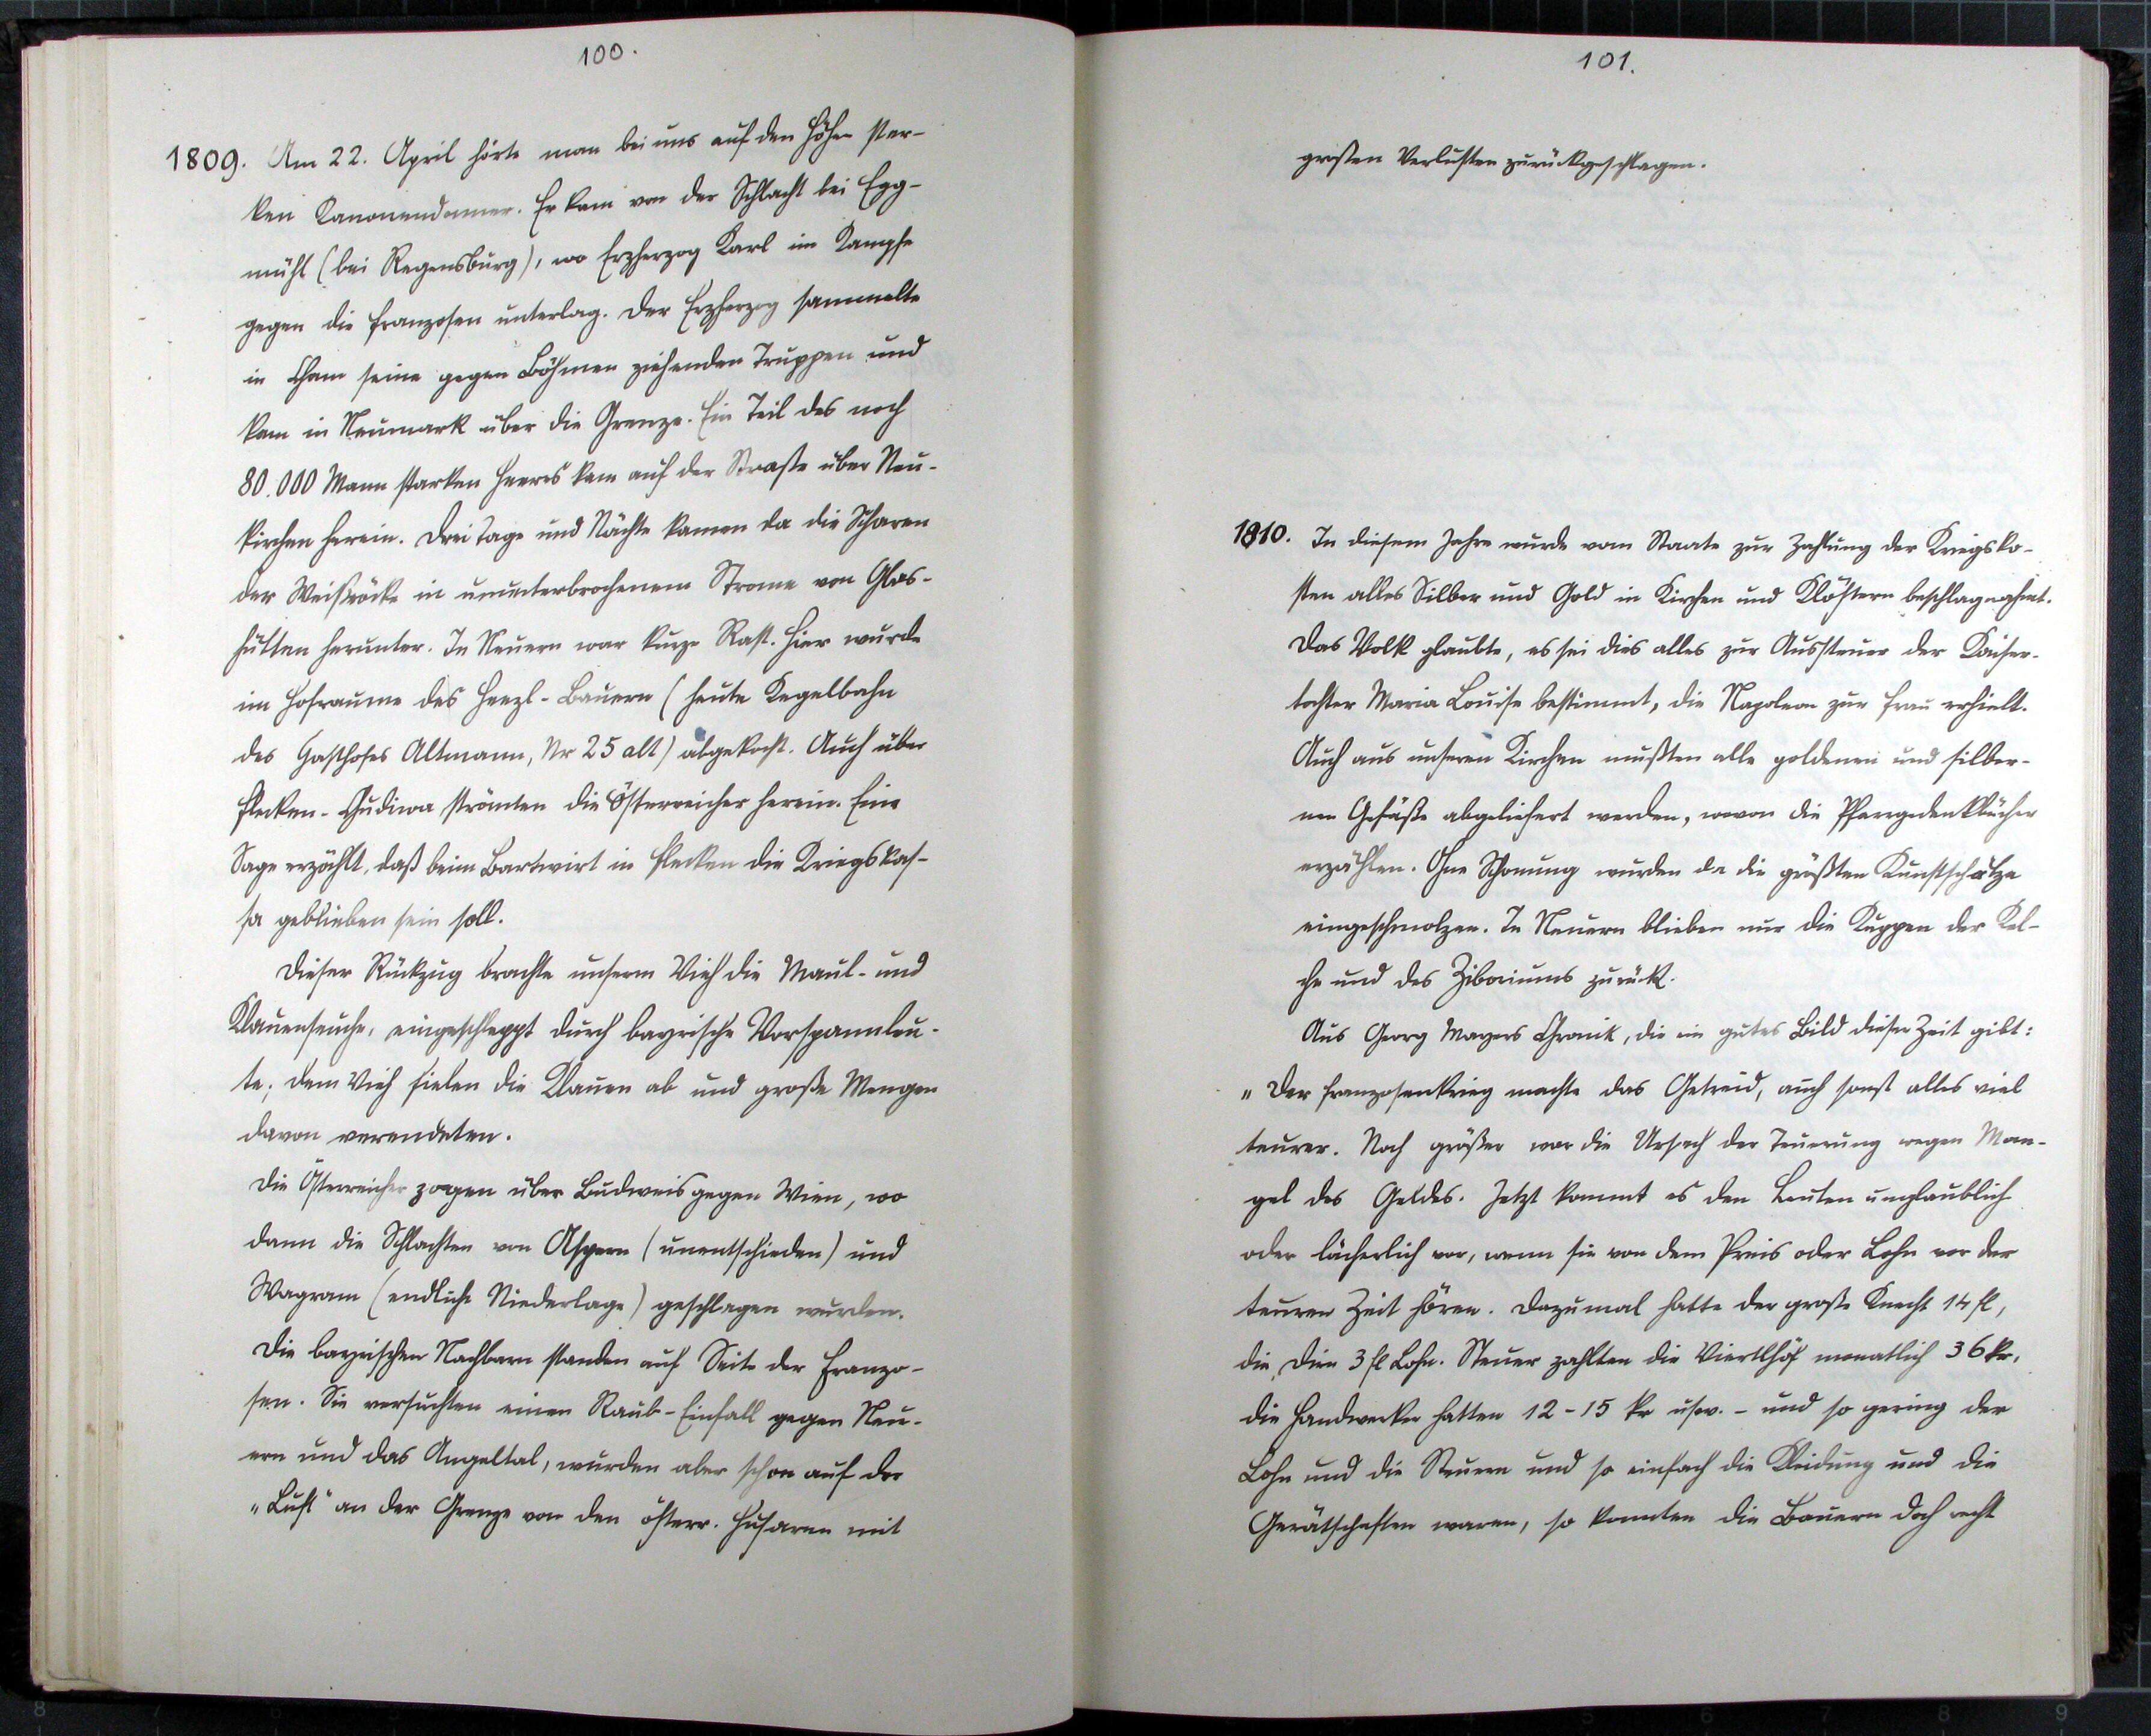 100.
1809. Am 22. April hörte man bei uns auf den Höhen star-
ken Kanonendonner. Er kam von der Schlacht bei Egg-
mühl (bei Regensburg), wo Erzherzog Karl im Kampfe
gegen die Franzosen unterlag. Der Erzherzog sammelte
in Cham seine gegen Böhmen ziehenden Truppen und
kam in Neumark über die Grenze. Ein Teil des noch
80.000 Mann starken Heeres kam auf der Straße über Neu-
kirchen herein. Drei Tage und Nächte kamen da die Scharen
der Weißröcke in ununterbrochenem Strome von Glas-
hütten herunter. In Neuern war kurze Rast. Hier wurde
im Hofraume des Henzl-Bauern (heute Kegelbahn
des Gasthofes Altmann, Nr 25 alt) abgekocht. Auch über
Flecken-Chudiwa strömten die Österreicher herein. Eine
Sage erzählt, daß beim Bartwirt in Flecken die Kriegskas-
sa geblieben sein soll.
Dieser Rückzug brachte unserm Vieh die Maul- und
Klauenseuche, eingeschleppt durch bayrische Vorspannleu-
te; dem Vieh fielen die Klauen ab und große Mengen
davon verendeten.
Die Österreicher zogen über Budweis gegen Wien, wo
dann die Schlachten von Aspern (unentschieden) und
Wagram (endliche Niederlage) geschlagen wurden.
Die bayrischen Nachbarn standen auf Seite der Franzo-
sen. Sie versuchten einen Raub-Einfall gegen Neu-
ern und das Angeltal, wurden aber schon auf der
„Luft" an der Grenze von den österr. Husaren mit
101.
großen Verlusten zurückgeschlagen.
1810. In diesem Jahre wurde vom Staate zur Zahlung der Kriegsko-
sten alles Silber und Gold in Kirchen und Klöstern beschlagnahmt.
Das Volk glaubte, es sei dies alles zur Aussteuer der Kaiser-
tochter Maria Louise bestimmt, die Napoleon zur Frau erhielt.
Auch aus unseren Kirchen mußten alle goldenen und silber-
nen Gefäße abgeliefert werden, wovon die Pfarrgedenkbücher
erzählen. Ohne Schonung wurden da die größten Kunstschätze
eingeschmolzen. In Neuern blieben nur die Kuppen der Kel-
che und des Ziboriums zurück.
Aus Georg Mayers Chronik, die ein gutes Bild dieser Zeit gibt:
„Der Franzosenkrieg machte das Getreid, auch sonst alles viel
teurer. Noch größer war die Ursach der Teuerung wegen Man-
gel des Geldes. Jetzt kommt es den Leuten unglaublich
oder lächerlich vor, wenn sie von dem Preis oder Lohn vor der
teuren Zeit hören. Dazumal hatte der große Knecht 14 fl,
die Dirn 3 fl Lohn. Steuer zahlten die Viertlhöf monatlich 36 kr,
die Handwerker hatten 12-15 kr usw. - und so gering der
Lohn und die Steuern und so einfach die Kleidung und die
Gerätschaften waren, so konnten die Bauern doch recht